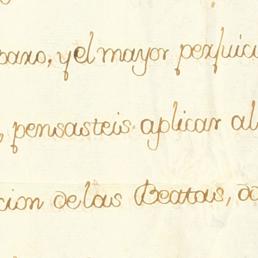 baxo, y el mayor perjuic
pensasteis aplicar al
cion de las Beatas, do